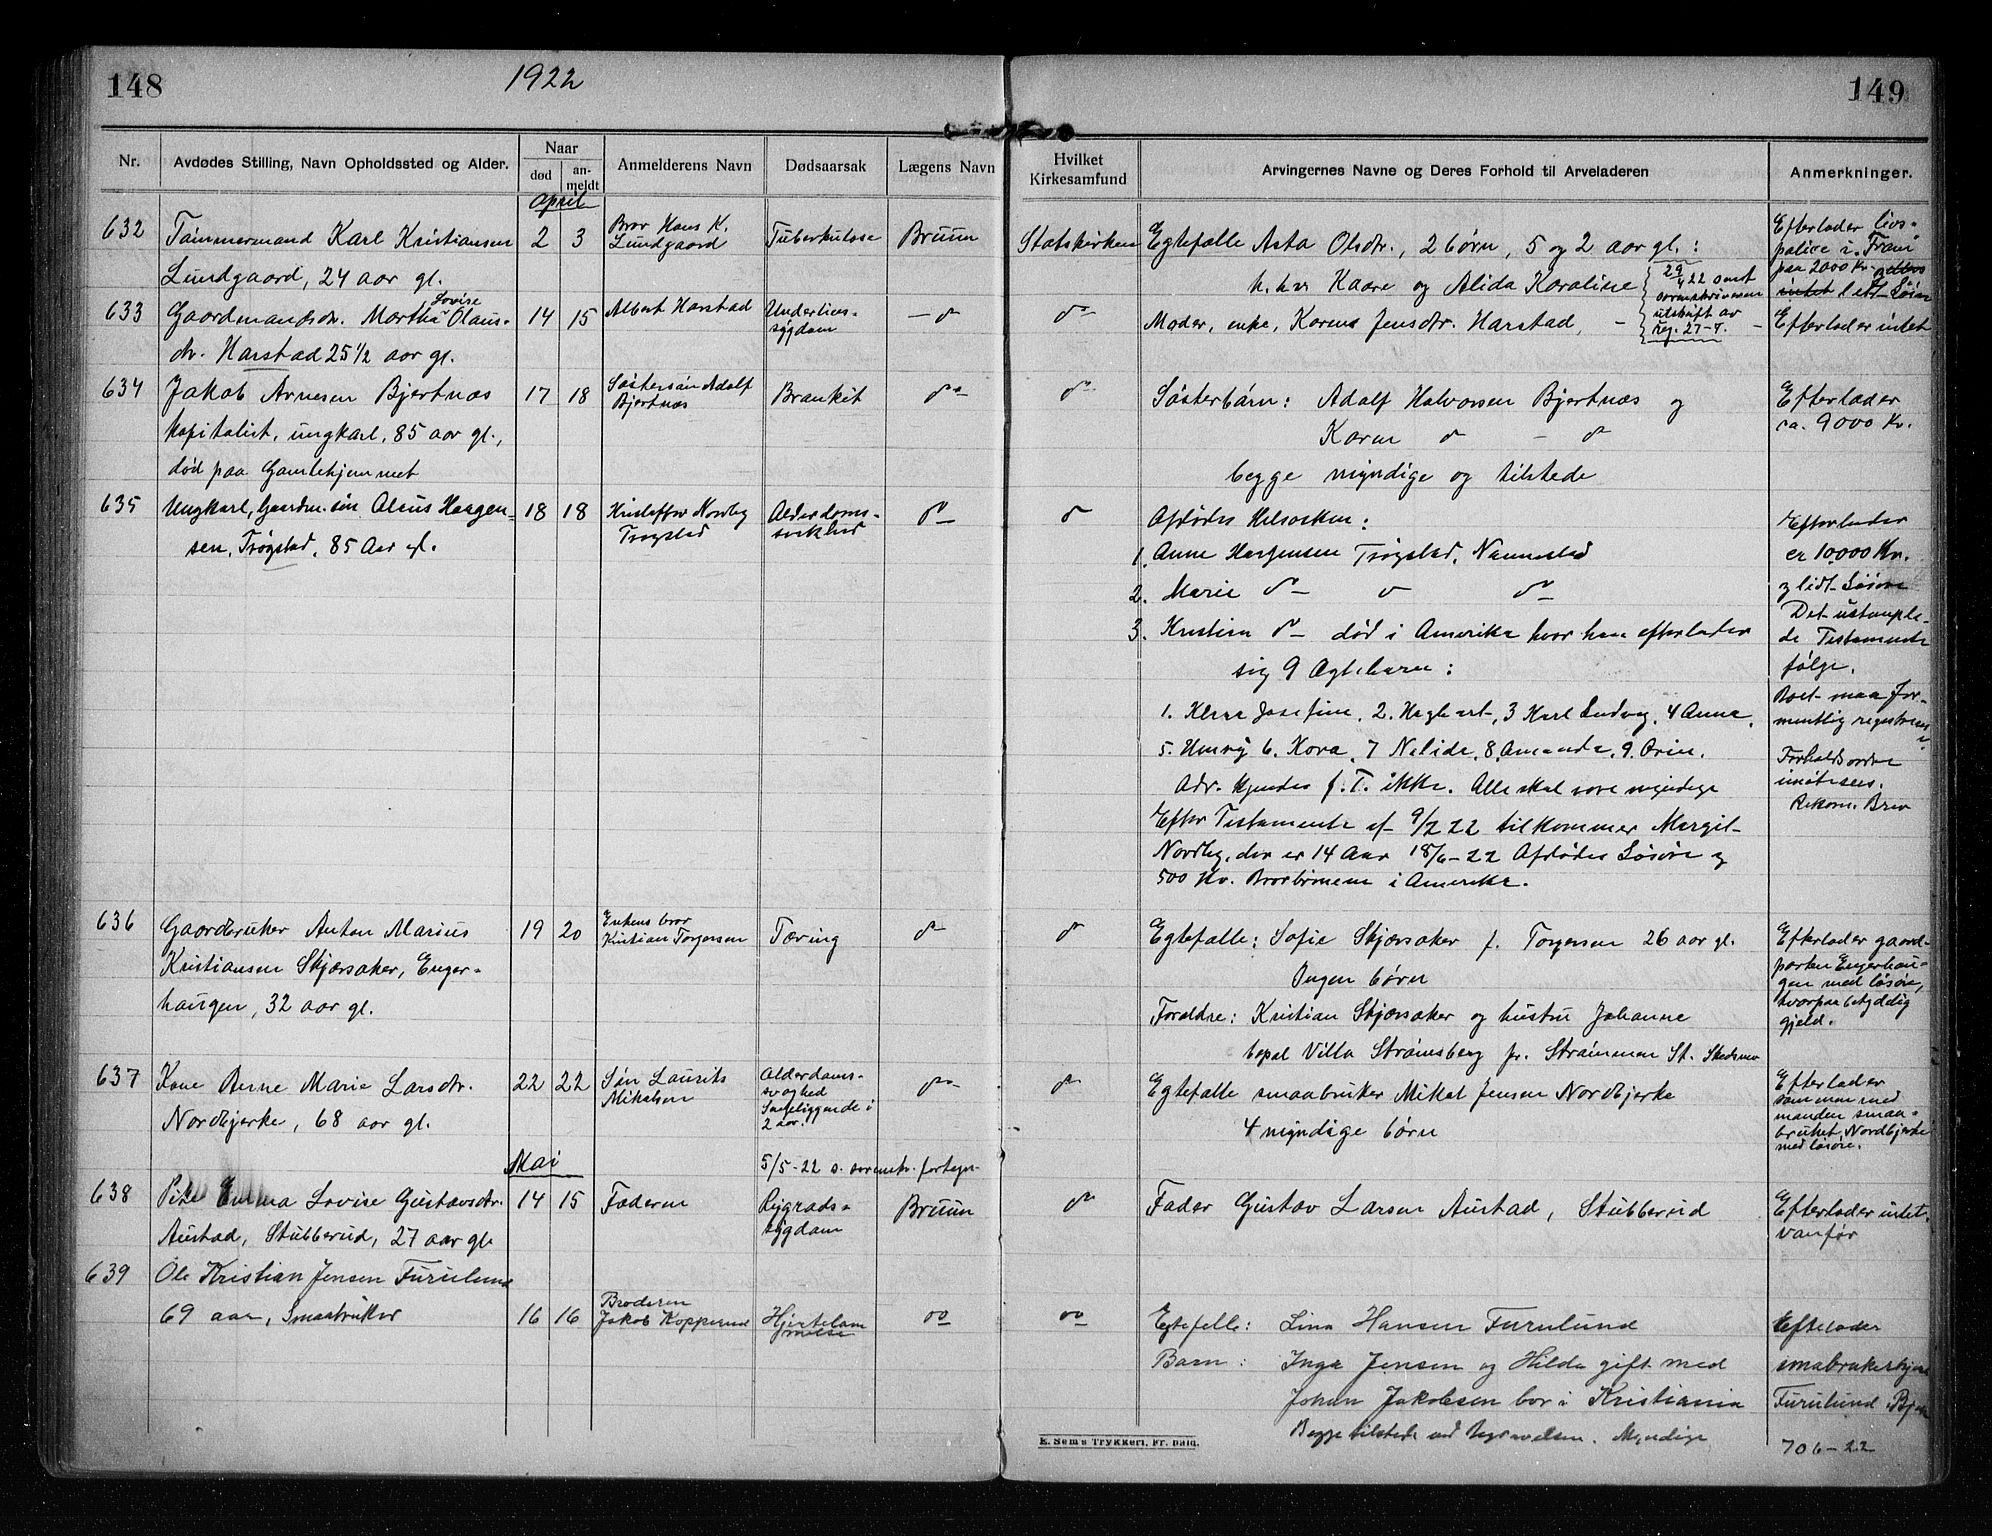 148
1922
149
Nr.
Avdødes Stilling, Navn Opholdssted og Alder.
Naar
død
an-
meldt
Anmelderens Navn
Dødsaarsak
Lægens Navn
Hvilket
Kirkesamfund
Arvingernes Navne og Deres Forhold til Arveladeren
Anmerkninger.
April
632
Tømmermand Karl Kristiansen
Lundgaard, 24 aar gl.
2
3
Bror Hans K.
Lundgaard
Tuberkulose
Bruun
Statskirken
Egtefælle Asta Olsdtr., 2 børn, 5 og 2 aar gl.:
h.hv. Kaare og Alida Karoline
29/4 22 sendt
sorenskriveren
utskrift av
reg. 27-4.
Efterlader livs-
police i
paa 2000 Kr.
intet
633
Gaardmandsdr. Martha Lovise Olaus-
dr. Harstad 25 1/2 aar gl.
14
15
Albert Harstad
Underlivs-
sygdom
— " —
"
Moder, enke, Karen Jensdtr. Harstad,
Efterlader intet
634
Jakob Arnesen Bjertnæs
kapitalist, ungkarl, 85 aar gl.,
død paa Gamlehjemmet
17
18
Søstersøn Adolf
Bjertnæs
Brankit
"
"
Søsterbørn: Adolf Halvorsen Bjertnæs og
Karen " — "
begge myndige og tilstede
Efterlader
ca. 9000 Kr.
635
Ungkarl, Gaardm. søn Olaus Haagen-
sen, Trøgstad, 85 Aar gl.
18
18
Kristoffer Nordby
Trøgstad
Alderdoms-
svækked
"
"
Afdødes Helsøsken:
1. Anne Haagensen Trøgstad, Nannestad
2. Marie " — " "
3. Kristian " — død i Amerika hvor han efterlader
sig 9 Ægtebarn:
1. Klara Josefine, 2. Hagbart, 3 Karl Ludvig, 4 Anna,
5. 6. Kora, 7 Nalide, 8. Amanda, 9. Orin.
Adr. kjendes f. T. ikke. Alle skal være myndige
Efter Testamente af 9/2 22 tilkommer Margit
Nordby, der er 14 Aar 18/6-22 Afdødes Løsøre og
500 Kr. Brorbørnene i Amerika.
Efterlader
er 10,000 Kr.
og lidt Løsøre
Det ustemple-
de Testamente
følge.
Boet maa for-
mentlig registreres
Forholdsordre
imøtesees.
Rekom. Brev
636
Gaardbruker Anton Marius
Kristiansen Skjærsaker, Enger-
haugen, 32 aar gl.
19
20
Enkens bror
Kristian Torgersen
Tæring
"
"
Egtefælle: Sofie Skjærsaker f. Torgersen 26 aar gl.
Ingen børn
Foreldre: Kristian Skjærsaker og hustru Johanne
bopæl Villa Strømsberg pr. Strømmen St. Skedsmo
Efterlader gaard-
parten Engerhau-
gen med løsøre,
hvorpaa betydelig
gjeld.
637
Kone Anne Marie Larsdtr.
Nordbjerke, 68 aar gl.
22
22
Søn Laurits
Mikalsen
Alderdoms-
svaghed
Sengeliggende i
2 aar.
"
"
Egtefælle smaabruker Mikal Jensen Nordbjerke
4 myndige børn
Efterlader
sammen med
manden smaa-
bruket Nordbjerke
med løsøre.
Mai
5/5-22 s. sorenskr. fortegn.
638
Pike Emma Lovise Gustavsdtr.
Austad, Stubberud, 27 aar gl
14
15
Faderen
Rygrads-
sygdom
Bruun
"
Fader Gustav Larsen Austad, Stubberud
Efterlader intet.
vanfør
639
Ole Kristian Jensen Furulund
69 aar, Smaabruker
16
16
Broderen
Jakob Kopperud
Hjertelam
melse
"
"
Egtefelle: Lina Hansen Furulund
Barn: Inga Jensen og Hilda gift med
Johan Jakobsen bor i Kristiania
Begge tilstede ved Begravelsen. Myndige
Efterlader
smabrukerhjem
Furulund i
706-22
E. Sem's Trykkeri, Fr.hald.